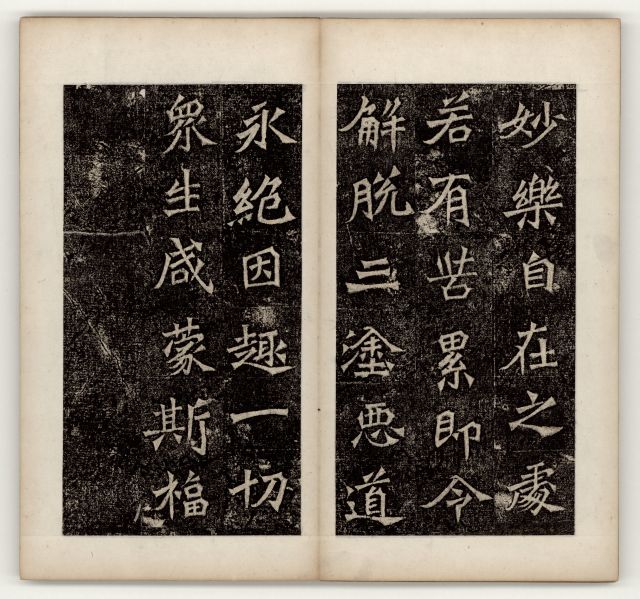 妙樂自在之處
若有苦累即令
解脫三塗惡道
永絕因趣一切
眾生咸蒙斯福